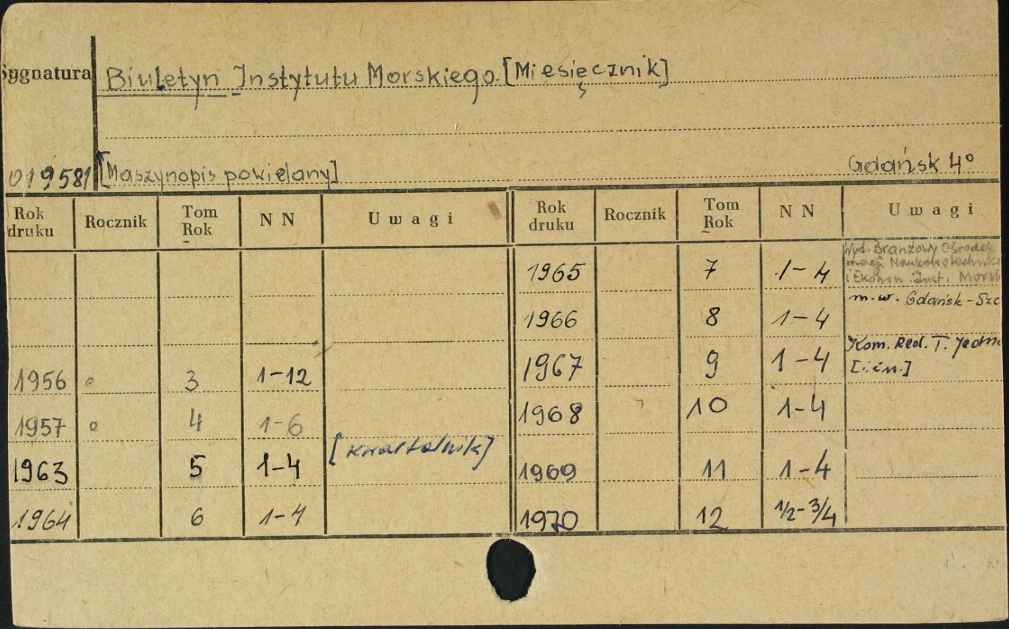 Sygnatura Biuletyn Instytutu Morskiego. [Miesięcznik]
019581 [Maszynopis powielany] Gdańsk 4°
Rok druku Rocznik Tom Rok NN Uwagi Rok druku Rocznik Tom Rok NN Uwagi
1965 7 1-4 Wyd. Branżowy Ośrodek
i Ekonom. Inst. Morsk
1966 8 1-4 m.w. Gdańsk-Szc
1956 ° 3 1-12 1967 9 1-4 Kom. Red. T. Jedn
[i in.]
1957 ° 4 1-6 1968 10 1-4
1963 5 1-4 [kwartalnik] 1969 11 1-4
1964 6 1-4 1970 12 1/2-3/4